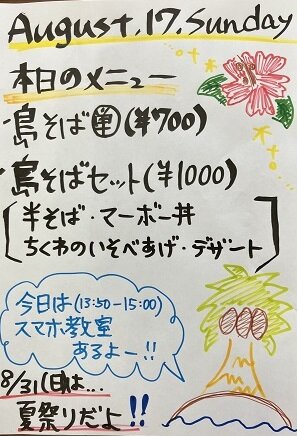 August.17.Sunday
本日のメニュー
・島そば㊥(¥700)
・島そばセット(¥1000)
[半そば・マーボー丼
ちくわのいそべあげ・デザート]
今日は(13:50-15:00)
スマホ教室
あるよー!!
8/31(日)は...
夏祭りだよ!!